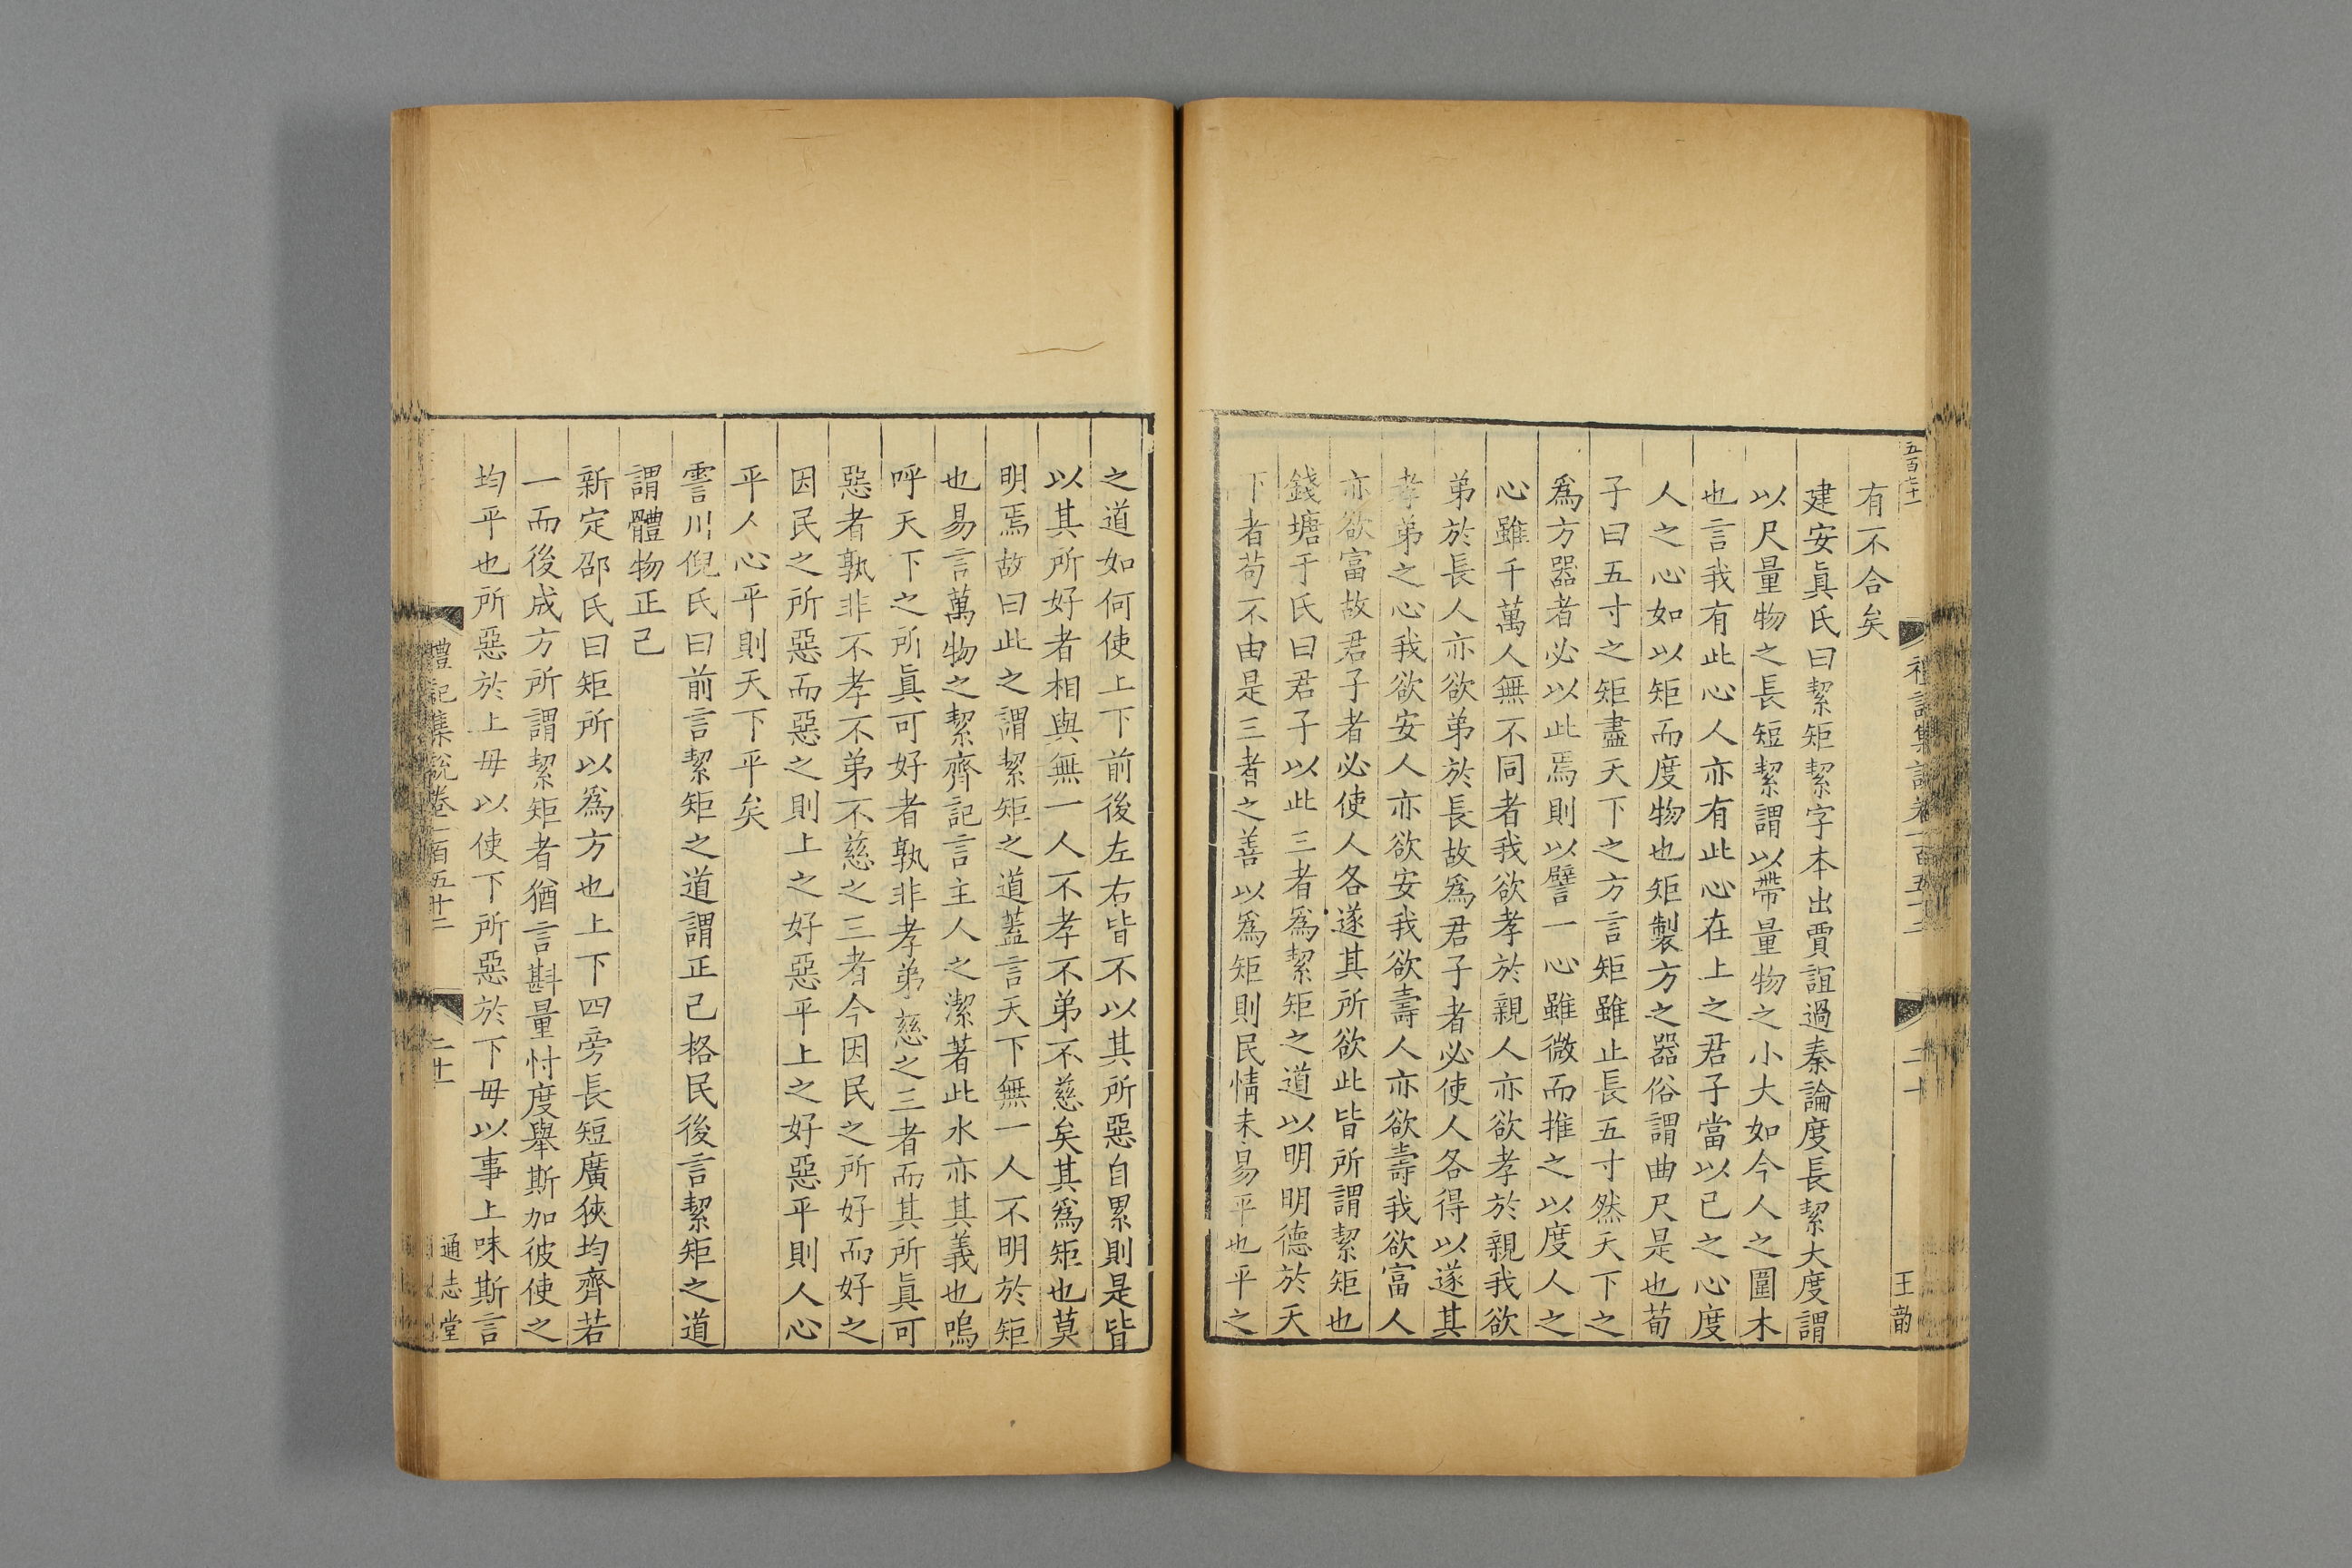 五百七十一
禮記集說卷一百五十二
二十
王韵
有不合矣
建安眞氏曰絜矩絜字本出賈誼過秦論度長絜大度謂
以尺量物之長短絜謂以帶量物之小大如今人之圍木
也言我有此心人亦有此心在上之君子當以己之心度
人之心如以矩而度物也矩製方之器俗謂曲尺是也荀
子曰五寸之矩盡天下之方言矩雖止長五寸然天下之
爲方器者必以此焉則以譬一心雖微而推之以度人之
心雖千萬人無不同者我欲孝於親人亦欲孝於親我欲
弟於長人亦欲弟於長故爲君子者必使人各得以遂其
孝弟之心我欲安人亦欲安我欲壽人亦欲壽我欲富人
亦欲富故君子者必使人各遂其所欲此皆所謂絜矩也
錢塘于氏曰君子以此三者爲絜矩之道以明明德於天
下者苟不由是三者之善以爲矩則民情未易平也平之
之道如何使上下前後左右皆不以其所惡自累則是皆
以其所好者相與無一人不孝不弟不慈矣其爲矩也莫
明焉故曰此之謂絜矩之道蓋言天下無一人不明於矩
也易言萬物之絜齊記言主人之潔著此水亦其義也嗚
呼天下之所眞可好者孰非孝弟慈之三者而其所眞可
惡者孰非不孝不弟不慈之三者今因民之所好而好之
因民之所惡而惡之則上之好惡平上之好惡平則人心
平人心平則天下平矣
霅川倪氏曰前言絜矩之道謂正己格民後言絜矩之道
謂體物正己
新定邵氏曰矩所以爲方也上下四旁長短廣狹均齊若
一而後成方所謂絜矩者猶言斟量忖度舉斯加彼使之
均平也所惡於上毋以使下所惡於下毋以事上味斯言
禮記集說卷一百五十二
二十一
通志堂